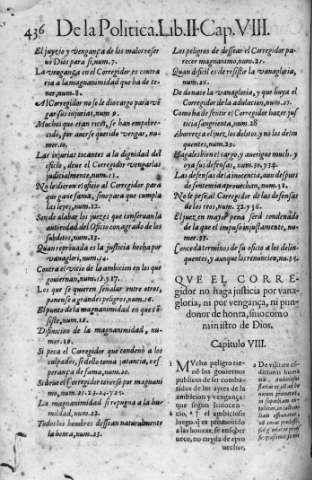 436 De la Politica. Lib. II. Cap. VIII.
El juyzio y vengança de los males reseruò
Dios para si, num. 7.
La vengança en el Corregidor es contraria
a la magnanimidad que ha de tener,
num. 8.
Al Corregidor no se le dio cargo para vẽgar
sus injurias, num. 9.
Muchos que eran ricos, se han empobrecido,
por auerse querido vengar, numero.
10.
Las injurias tocantes a la dignidad del
oficio, deue el Corregidor vengarlas
judicialmente, num. 11.
No le dieron el oficio al Corregidor para
que gane fama, sino para que cumpla
las leyes, num. 12.
Son de alabar los juezes que conseruan la
autoridad del Oficio con agrado de los
subditos, num. 13.
Quan reprouada es la justicia hecha por
vanagloria, num. 14.
Contra el vicio de la ambicion en los que
gouiernan, num. 15. y 17.
Los que se quieren señalar entre otros,
ponense a grandes peligros, num. 16.
El punto de la magnanimidad en que consiste,
num. 18.
Distincion de la magnanimidad, numero.
19.
Si peca el Corregidor que condenò a los
culpados, si dello toma jatancia, es
perança de fama, num. 20.
Si deue el Corregidor tenerse por magnanimo,
num. 21. 23. 24. y 25.
La magnanimidad si repugna a la humildad,
num. 22.
Todos los hombres dessean naturalmente
la honra, num. 23.
Los peligros de dessear el Corregidor parecer
magnanimo, num. 25.
Quan dificil es de resistir la vanagloria,
num. 26.
De donde la vanagloria, y que huya el
Corregidor de la adulacion, num. 27.
Como ha de sentir el Corregidor hazer justicia
sangrienta, num. 28
Aborrezca el juez, los delitos, y no los delinquentes,
num. 29.
Hagales bien el cargo, y aueriguen mucho, y
oya sus defensas, num. 30. y 34.
Las defensas de la inocencia, aun despues
de sentencia aprouechan, num. 31.
No le pese al Corregidor de las defensas
de los reos, num. 32. y 36.
El juez, en mayor pena serà condenado
de la que el impuso injustamente, numero.
35.
Conceda terminos de su oficio a los delinquentes,
y aunque los renuncien, n. 37.
QVE EL CORREgidor
no haga justicia por vanagloria,
ni por vengança, ni pundonor
de honra, sino como
ministro de Dios.
Capitulo VIII.
1 Mucho peligro tienẽ
los gouiernos
publicos de ser combatidos
de los ayres de la
ambicion y vengança:
que segun Inocencio,
a el ambicioso
luego que es promouido
a las honras, se ensoberuece,
no cuyda de aprouechar,